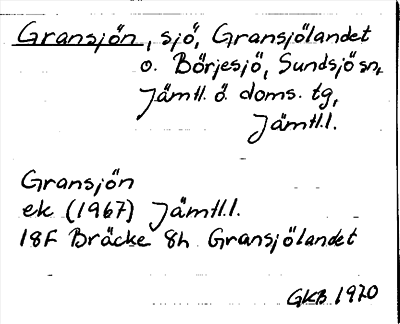 Gransjön, sjö, Gransjölandet
o. Börjesjö, Sundsjö sn,
Jämtl. ö. doms. tg,
Jämtl.l.
Gransjön
ek (1967) Jämtl.l.
18F Bräcke 8h Gransjölandet
GKB 1970